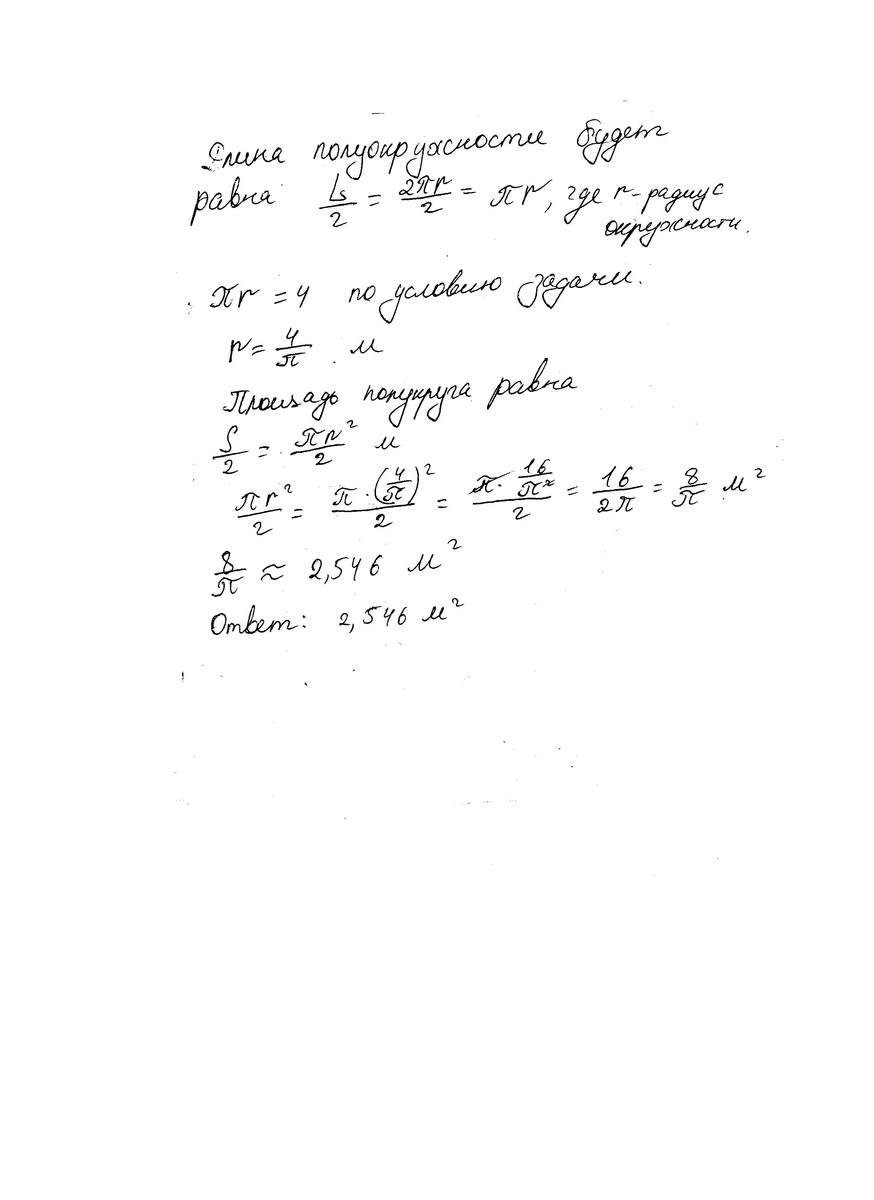 Длина полуокружности будет
равна Ls/2 = 2πr/2 = πr, где r - радиус
окружности.
πr = 4 по условию задачи.
r = 4/π м
Площадь полукруга равна
S/2 = πr²/2 м
πr²/2 = π·(4/π)²/2 = π·16/π²/2 = 16/2π = 8/π м²
8/π ≈ 2,546 м²
Ответ: 2,546 м²